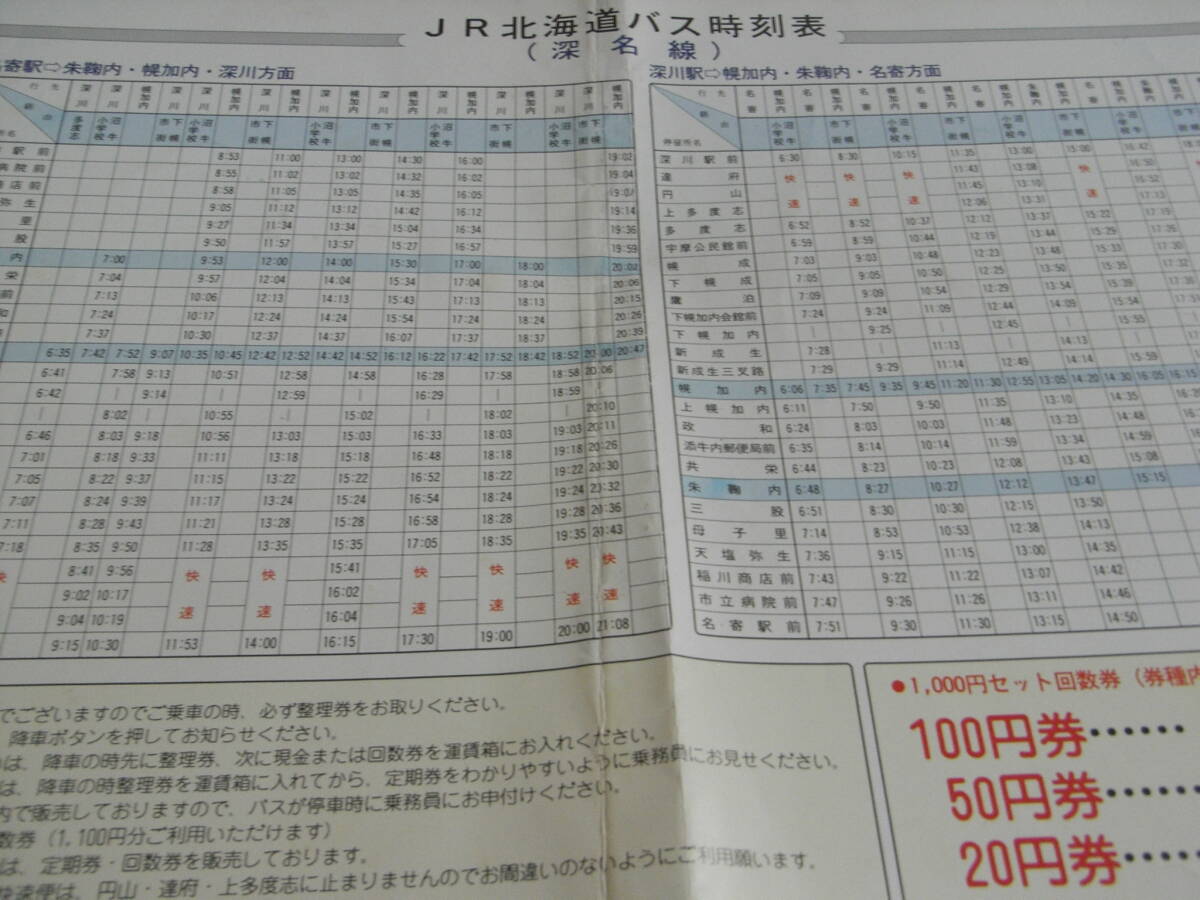 JR北海道バス時刻表
(深名線)
寄駅⇨朱鞠内・幌加内・深川方面
行先 深川 深川 幌加内 深川 深川 幌加内 深川 幌加内 深川 幌加内 深川 幌加内 幌加内 深川 幌加内 深川 深川 幌加内
経由 多度志 沼牛小学校 下幌市街 沼牛小学校 下幌市街 沼牛小学校 下幌市街 沼牛小学校 下幌市街 沼牛小学校 下幌市街
駅前 8:53 11:00 13:00 14:30 16:00 19:02
病院前 8:55 11:02 13:02 14:32 16:02 19:04
商店前 8:58 11:05 13:05 14:35 16:05 19:07
弥生 9:05 11:12 13:12 14:42 16:12 19:14
里 9:27 11:34 13:34 15:04 16:34 19:36
股 9:50 11:57 13:57 15:27 16:57 19:59
内 7:00 9:53 12:00 14:00 15:30 17:00 18:00 20:02
栄 7:04 9:57 12:04 14:04 15:34 17:04 18:04 20:06
前 7:13 10:06 12:13 14:13 15:43 17:13 18:13 20:15
和 7:24 10:17 12:24 14:24 15:54 17:24 18:24 20:26
7:37 10:30 12:37 14:37 16:07 17:37 18:37 20:39
6:35 7:42 7:52 9:07 10:35 10:45 12:42 12:52 14:42 14:52 16:12 16:22 17:42 17:52 18:42 18:52 20:00 20:47
6:41 7:58 9:13 10:51 12:58 14:58 16:28 17:58 18:58 20:06
6:42 | 9:14 | 12:59 | 16:29 | 18:59 |
| 8:02 | 10:55 | 15:02 | 18:02 | 20:10
6:46 8:03 9:18 10:56 13:03 15:03 16:33 18:03 19:03 20:11
7:01 8:18 9:33 11:11 13:18 15:18 16:48 18:18 19:18 20:26
7:05 8:22 9:37 11:15 13:22 15:22 16:52 18:22 19:22 20:30
7:07 8:24 9:39 11:17 13:24 15:24 16:54 18:24 19:24 20:32
7:11 8:28 9:43 11:21 13:28 15:28 16:58 18:28 19:28 20:36
7:18 8:35 9:50 11:28 13:35 15:35 17:05 18:35 19:35 20:43
快 8:41 9:56 快 快 15:41 快 快 快 快
9:02 10:17 16:02
9:04 10:19 速 速 16:04 速 速 速 速
9:15 10:30 11:53 14:00 16:15 17:30 19:00 20:00 21:08
深川駅⇨幌加内・朱鞠内・名寄方面
行先 名寄 幌加内 名寄 幌加内 名寄 幌加内 名寄 幌加内 名寄 朱鞠内 幌加内 名寄 幌加内 朱鞠内 幌加内
経由 沼牛小学校 下幌市街 沼牛小学校 下幌市街 沼牛小学校 下幌市街 沼牛小学校
停留所名
深川駅前 6:30 8:30 10:15 11:35 13:00 15:00 16:42
達府 快 快 快 11:43 13:08 快 16:50
円山 11:45 13:10 16:52
上多度志 速 速 速 12:06 13:31 速 17:13
多度志 6:52 8:52 10:37 12:12 13:37 15:22 17:19
宇摩公民館前 6:59 8:59 10:44 12:19 13:44 15:29 17:26
幌成 7:03 9:03 10:48 12:23 13:48 15:33 17:30
下幌成 7:05 9:05 10:50 12:25 13:50 15:35 17:32
鷹泊 7:09 9:09 10:54 12:29 13:54 15:39 17:36
下幌加内会館前 7:24 9:24 11:09 12:44 14:09 15:54
下幌加内 | 9:25 | 12:45 | 15:55
新成生 7:28 | 11:13 | 14:13 |
新成生三叉路 7:29 9:29 11:14 12:49 14:14 15:59
幌加内 6:06 7:35 7:45 9:35 9:45 11:20 11:30 12:55 13:05 14:20 14:30 16:05 16:15
上幌加内 6:11 7:50 9:50 11:35 13:10 14:35
政和 6:24 8:03 10:03 11:48 13:23 14:48
添牛内郵便局前 6:35 8:14 10:14 11:59 13:34 14:59
共栄 6:44 8:23 10:23 12:08 13:43 15:08
朱鞠内 6:48 8:27 10:27 12:12 13:47 15:15
三股 6:51 8:30 10:30 12:15 13:50
母子里 7:14 8:53 10:53 12:38 14:13
天塩弥生 7:36 9:15 11:15 13:00 14:35
稲川商店前 7:43 9:22 11:22 13:07 14:42
市立病院前 7:47 9:26 11:26 13:11 14:46
名寄駅前 7:51 9:30 11:30 13:15 14:50
でございますのでご乗車の時、必ず整理券をお取りください。
降車ボタンを押してお知らせください。
は、降車の時先に整理券、次に現金または回数券を運賃箱にお入れください。
は、降車の時整理券を運賃箱に入れてから、定期券をわかりやすいように乗務員にお見せください。
内で販売しておりますので、バスが停車時に乗務員にお申付けください。
数券(1,100円分ご利用いただけます)
は、定期券・回数券を販売しております。
快速便は、円山・達府・上多度志に止まりませんのでお間違いのないようにご利用願います。
●1,000円セット回数券(券種内
100円券……
50円券……
20円券……